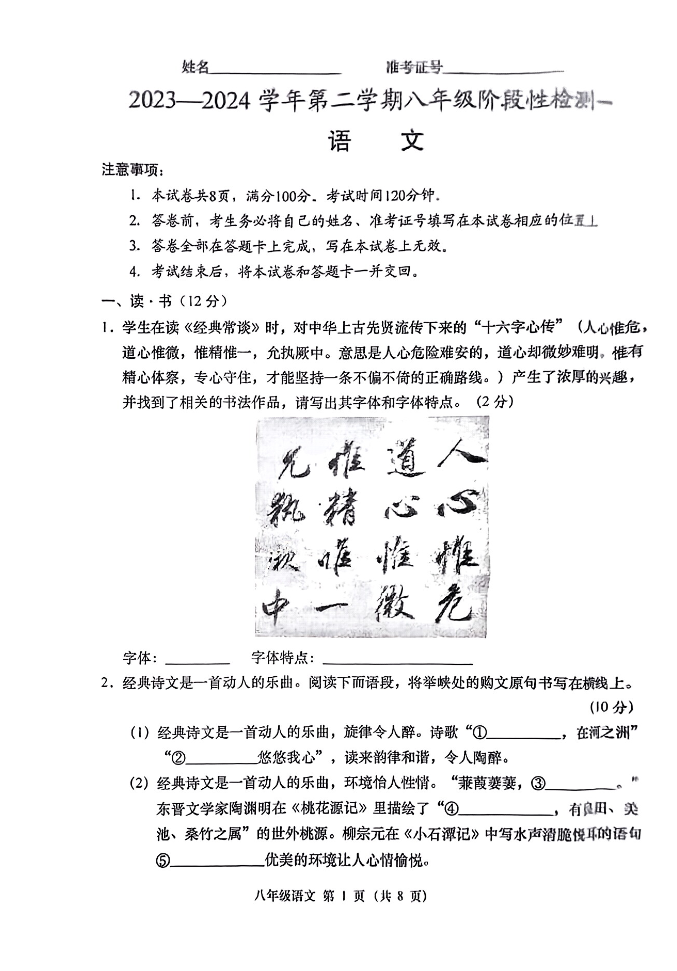 姓名 准考证号
2023—2024学年第二学期八年级阶段性检测一
语 文
注意事项：
1. 本试卷共8页，满分100分。考试时间120分钟。
2. 答卷前，考生务必将自己的姓名、准考证号填写在本试卷相应的位置上
3. 答卷全部在答题卡上完成，写在本试卷上无效。
4. 考试结束后，将本试卷和答题卡一并交回。
一、读·书（12分）
1. 学生在读《经典常谈》时，对中华上古先贤流传下来的“十六字心传”（人心惟危，
道心惟微，惟精惟一，允执厥中。意思是人心危险难安的，道心却微妙难明。惟有
精心体察，专心守住，才能坚持一条不偏不倚的正确路线。）产生了浓厚的兴趣，
并找到了相关的书法作品，请写出其字体和字体特点。（2分）
人心惟危
道心惟微
惟精唯一
允执厥中
字体：________ 字体特点：________________
2. 经典诗文是一首动人的乐曲。阅读下而语段，将举峡处的购文原句书写在横线上。
（10分）
（1）经典诗文是一首动人的乐曲，旋律令人醉。诗歌“①________，在河之洲”
“②________悠悠我心”，读来韵律和谐，令人陶醉。
（2）经典诗文是一首动人的乐曲，环境怡人性情。“蒹葭萋萋，③________。”
东晋文学家陶渊明在《桃花源记》里描绘了“④__________，有良田、美
池、桑竹之属”的世外桃源。柳宗元在《小石潭记》中写水声清脆悦耳的语句
⑤__________优美的环境让人心情愉悦。
八年级语文 第 1 页（共 8 页）